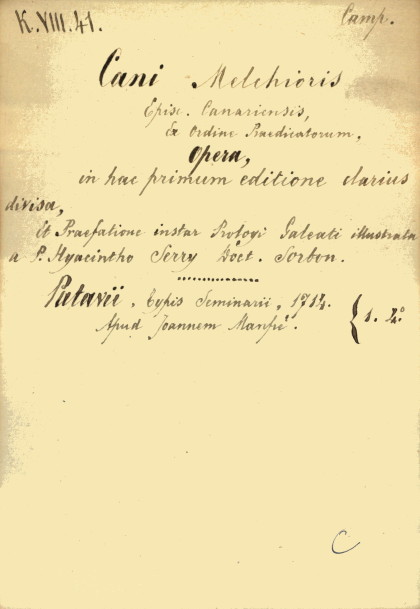 K.VIII.41.
Camp.
Cani Melchioris
Episc. Canariensis,
Ex Ordine Praedicatorum,
Opera,
in hac primum editione clarius
divisa,
Et Praefatione instar Prologi Galeati illustrata
a P. Hyacintho Serry Doct. Sorbon.
Patavii, Typis Seminarii, 1714.
Apud Joannem Manfrè.
{ 1. 4°
C